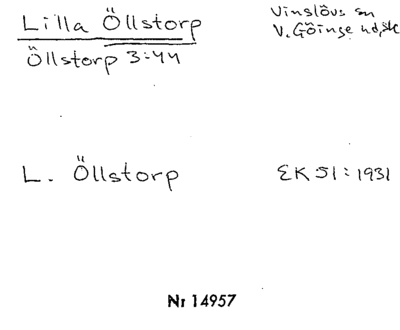 Lilla Öllstorp
Vinslövs sn
Öllstorp 3:44
V. Göinge hd, sk
L. Öllstorp
EK 51:1931
Nr 14957